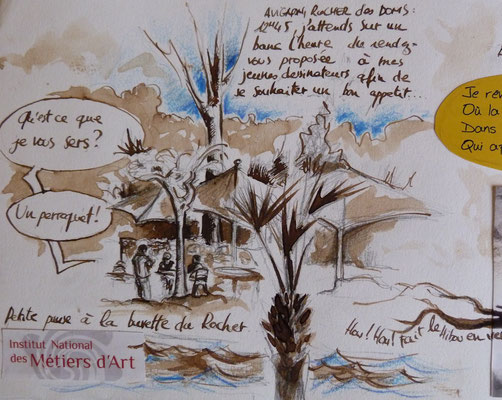 AVIGNON, ROCHER des DOMS :
12H45 j'attends sur un
banc l'heure du rendez-
vous proposée à mes
jeunes dessinateurs afin de
se souhaiter un bon appetit...
Qu'est ce que
je vous sers?
Un perroquet!
Je rev
Où la
Dans
Qui ap
Petite pause à la buvette du Rocher
Hou! Hou! fait le Hibou en ver
Institut National
des Métiers d'Art